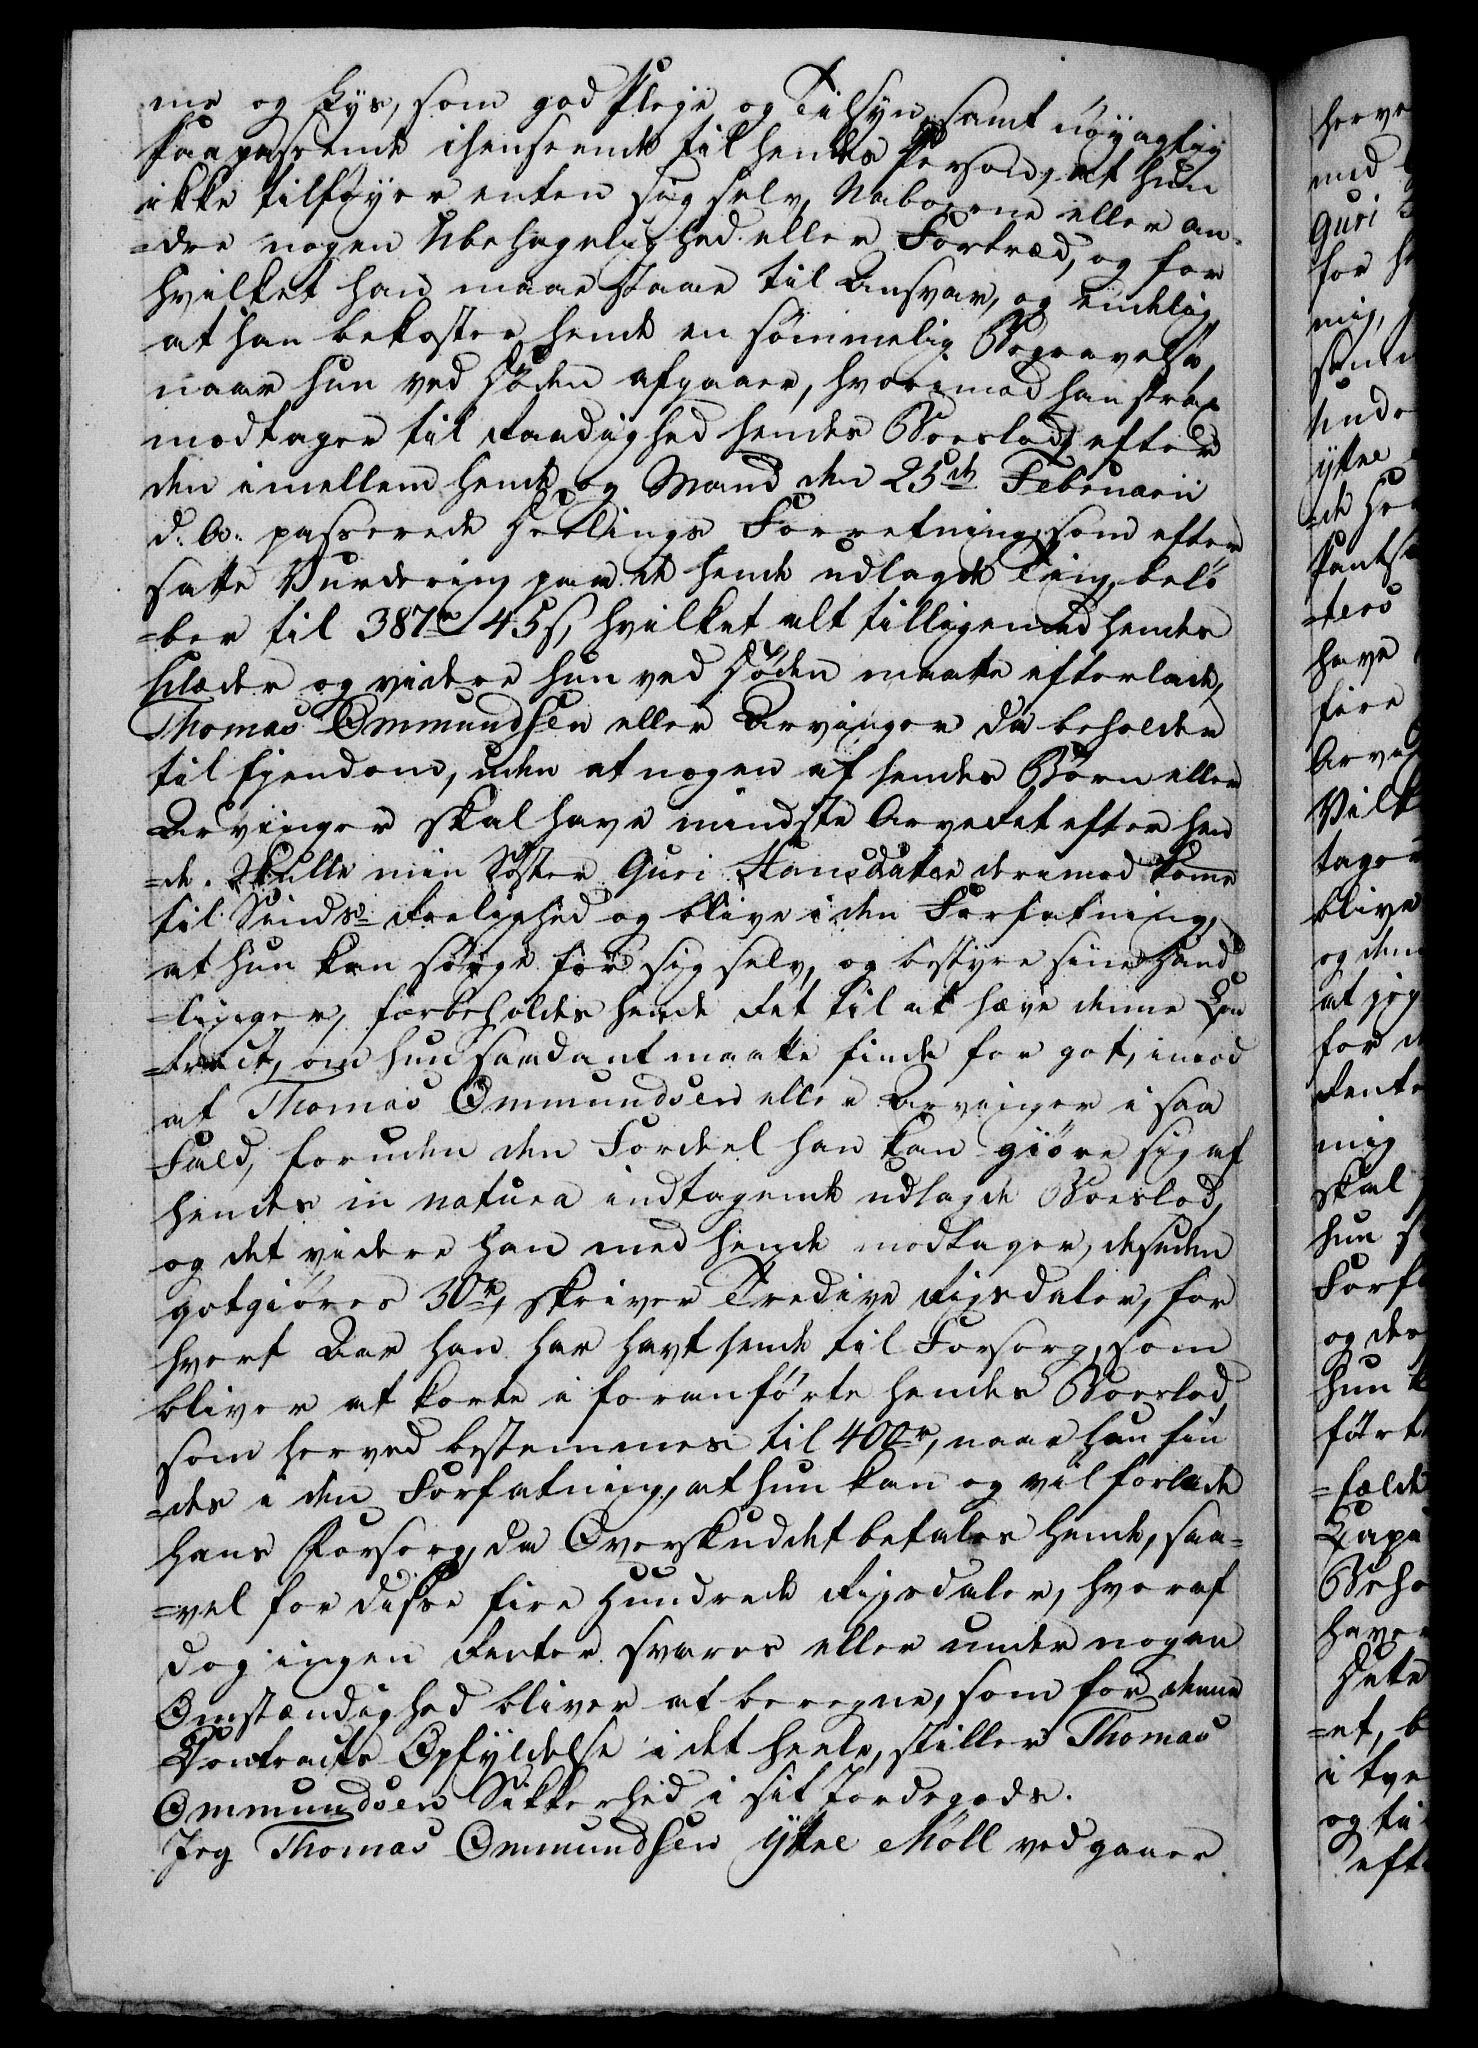 me og Lys, som god Pleje og Tilsyn, samt nöyagtig
Paapassende ihenseende til hendes Person, at hun
ikke tilföyer enten sig selv, Naboerne eller an-
=dre nogen Ubehagelighed eller Fortræd, og for
hvilket han maae staae til Ansvar, og endelig,
at han bekoster hende en sömmelig Begravelse,
naar hun ved Döden afgaaer, hvorimod han strax
modtager til Raadighed hendes Boeslod, efter
den imellem hende og Mand den 25de Februarii
d: A: passerede Deelings Forretning, som efter
satte Vurdering paa de hende udlagde Ting, belö
=ber til 387rd 45s, hvilket alt tilligemed hendes
Klæder og videre hun ved Döden maatte efterlade,
Thomas Ommundsen eller Arvinger da beholder
til Ejendom, uden at nogen af hendes Börn eller
Arvinger skal have mindste Arveret efter hen
=de. Skulle min Söster Guri Hansdatter derimod komme
til Sinds- Roelighed og blive i den Forfatning,
at hun kan sörge for sig selv, og bestyre sine Hand
=linger, forbeholdes hende Ret til at hæve denne Con
=tract, om hun saadant maatte finde for got, imod
at Thomas Ommundsen eller Arvinger i saa
Fald, foruden den Fordeel han kan giöre sig af
hendes in natura indtagende udlagde Boeslod,
og det videre han med hende modtager, desuden
gotgiöres 30rd, skriver Tredive Rigsdaler, for
hvert Aar han har havt hende til Forsorg, som
bliver at korte i foranförte hendes Boeslod,
som herved bestemmes til 400rd, naar hun fin
=des i den Forfatning, at hun kan og vil forlade
hans Forsorg, da Overskuddet betales hende, saa-
=vel for disse fire Hundrede Rigsdaler, hvoraf
dog ingen Renter svares eller under nogen
Omstændighed bliver at beregne, som for denne
Contracts Opfyldelse i det heele, stiller Thomas
Ommundsen Sikkerhed i sit Jordegods.
Jeg Thomas Ommundsen Yttre Möll vedgaaer